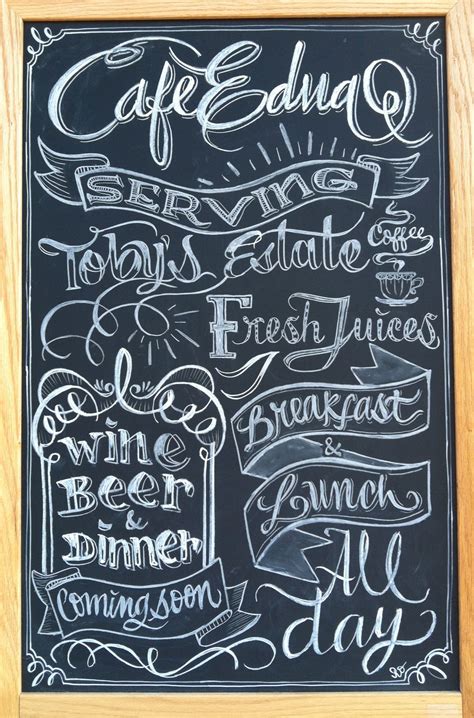 Cafe EdnaQ
SERVING
Toby's Estate
Coffee
Fresh Juices
Breakfast
&
Lunch
All
day
Wine
Beer
&
Dinner
Coming soon